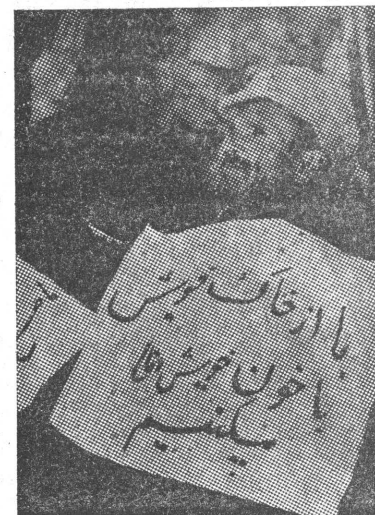 ما از خاک خویش
با خون خویش دفاع
میکنیم